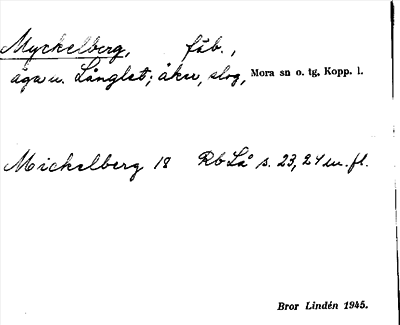 Myckelberg, fäb.,
äga u. Långlet; åker, slog, Mora sn o. tg, Kopp. l.
Mickelberg 18 Rb Lå s. 23, 24 m. fl.
Bror Lindén 1945.